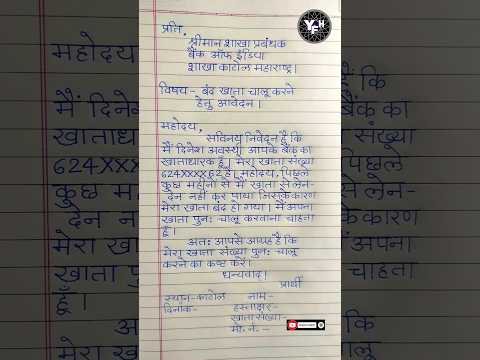 प्रति,
श्रीमान शाखा प्रबंधक
बैंक ऑफ इंडिया
शाखा काटोल महाराष्ट्र।
विषय- बंद खाता चालू करने
हेतु आवेदन।
महोदय,
सविनय निवेदन है कि
मैं दिनेश अवस्थी आपके बैंक का
खाताधारक हूँ। मेरा खाता संख्या
624XXXX62 है। महोदय, पिछले
कुछ महीनों से मैं खाता से लेन-
देन नहीं कर पाया जिसके कारण
मेरा खाता बंद हो गया। मैं अपना
खाता पुनः चालू करवाना चाहता
हूँ।
अतः आपसे आग्रह है कि
मेरा खाता संख्या पुनः चालू
करने का कष्ट करें।
धन्यवाद।
प्रार्थी
स्थान-काटोल नाम-
दिनांक- हस्ताक्षर-
खाता संख्या-
मो. नं. -